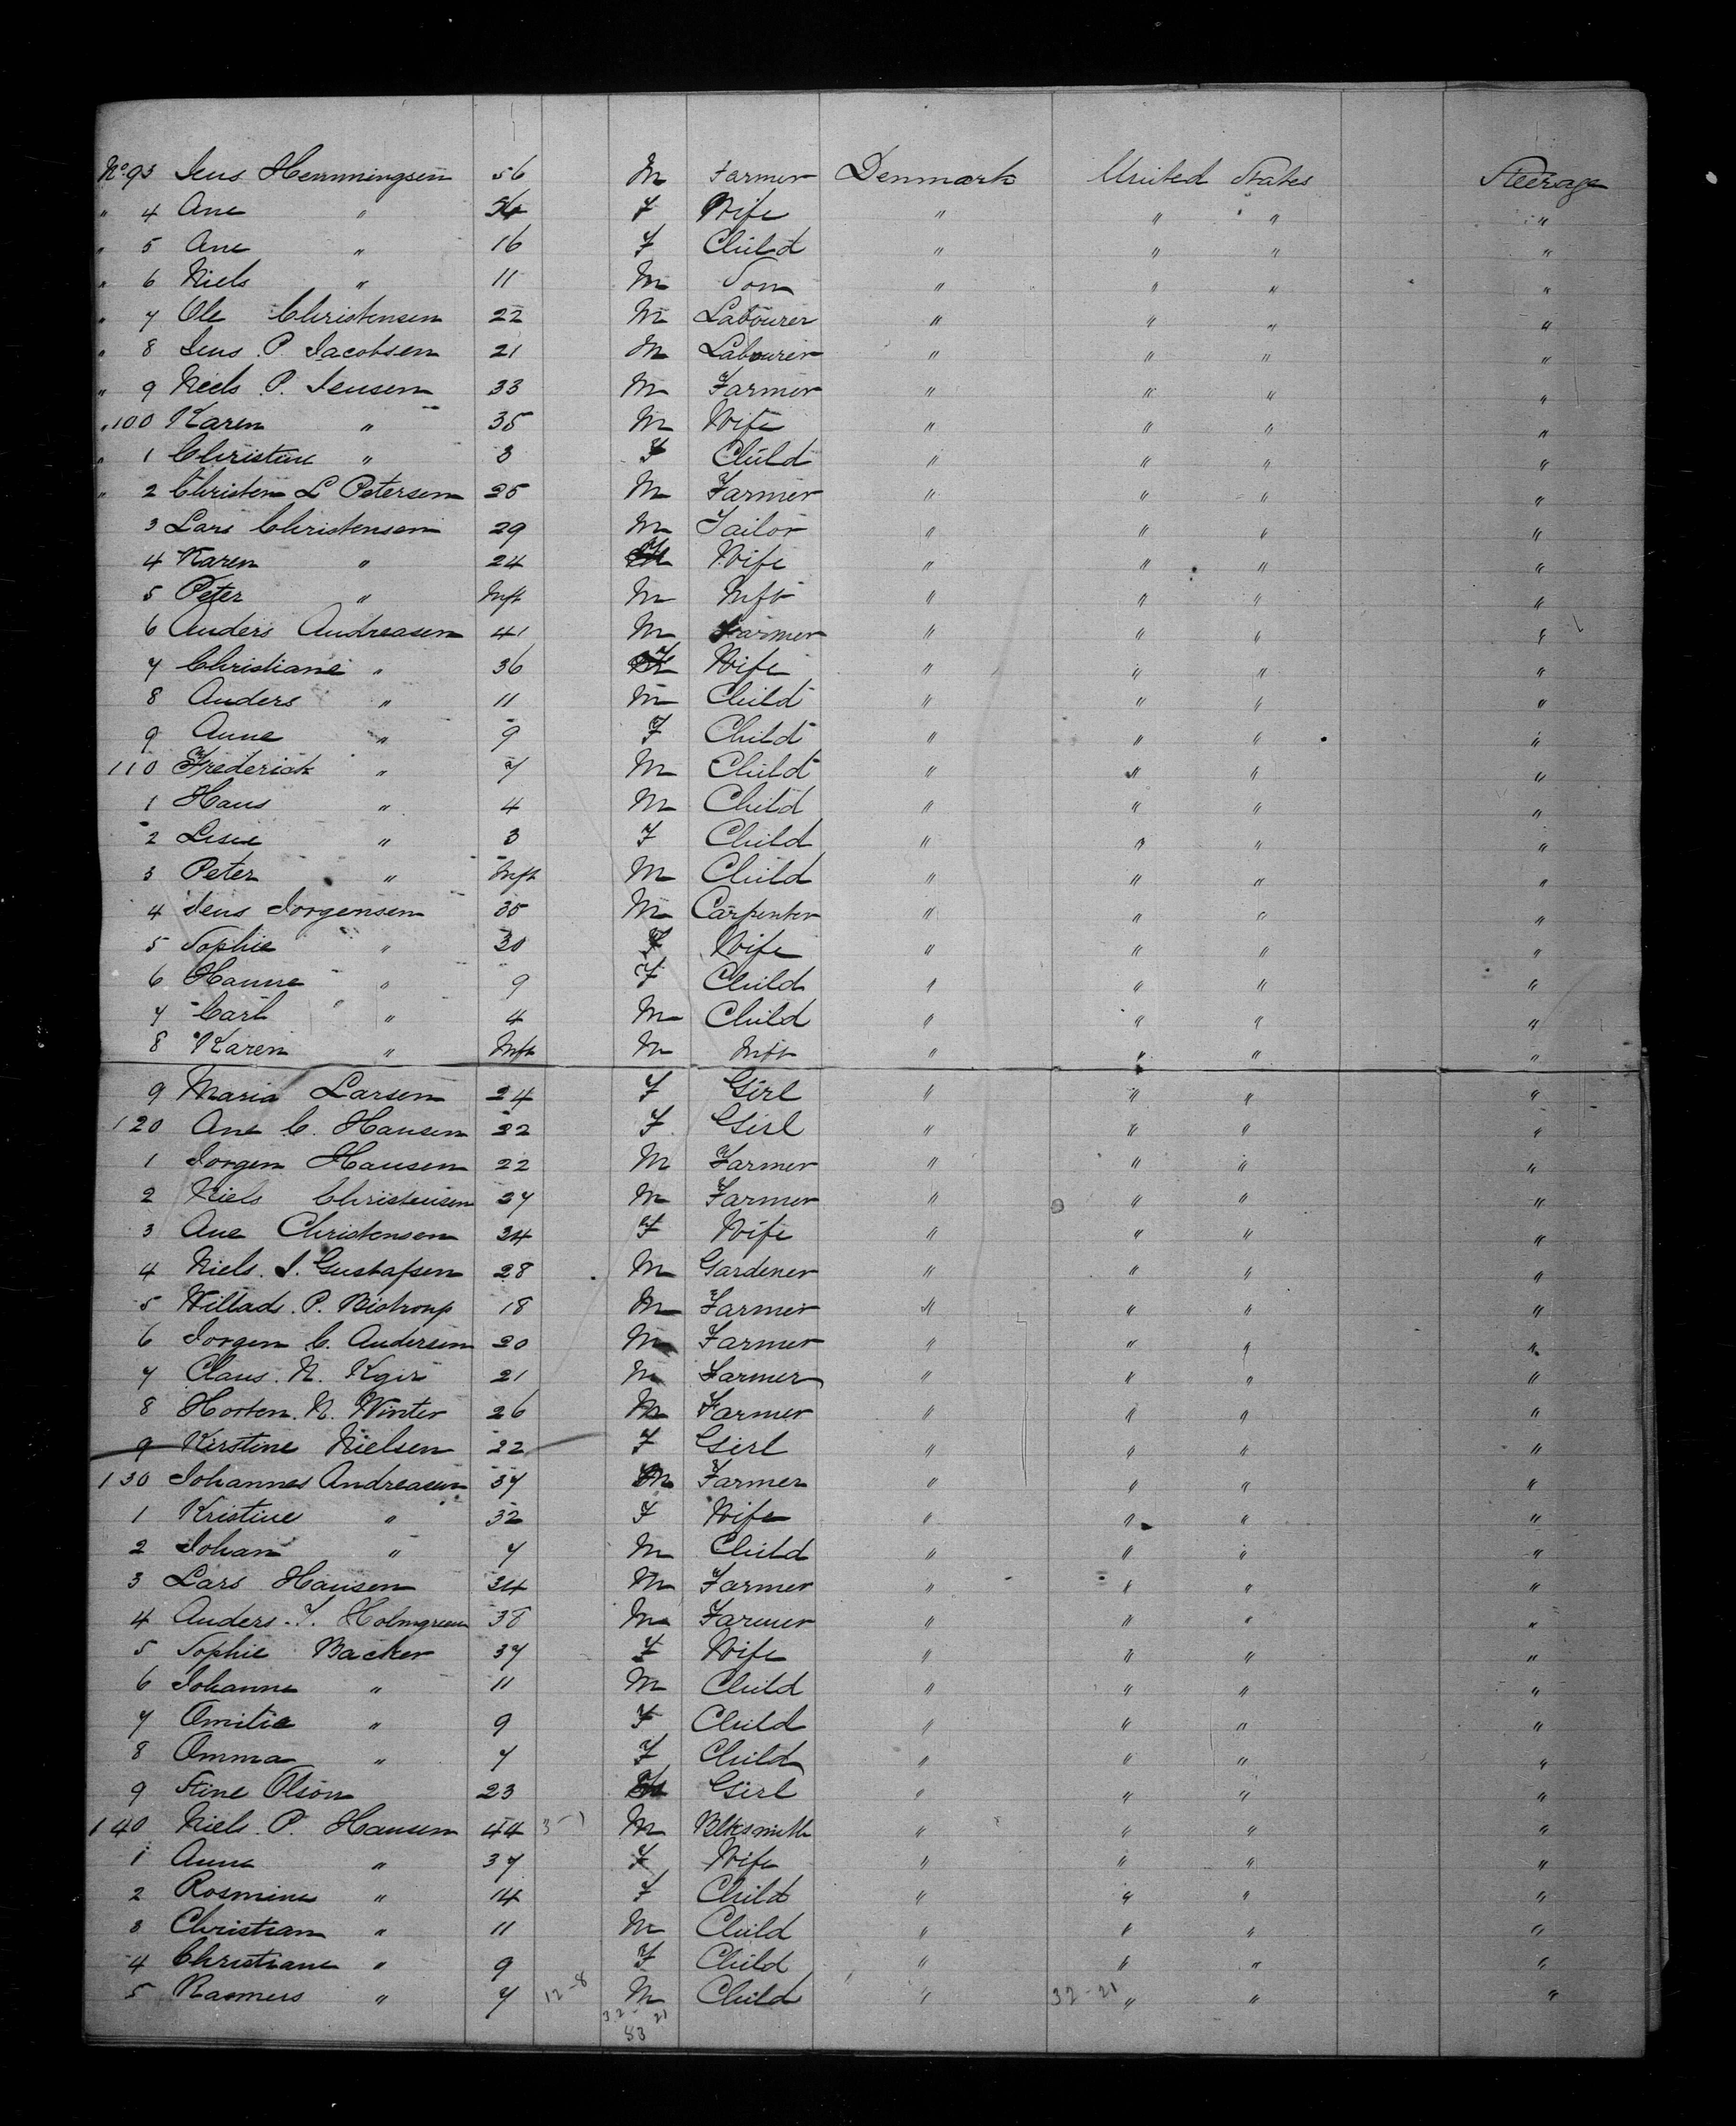 No 93 Jens Hemmingsen 56 M Farmer Denmark United States Steerage
" 4 Ane " 54 F Wife " " " "
" 5 Ane " 16 F Child " " " "
" 6 Niels " 11 M Son " " " "
" 7 Ole Christensen 22 M Labourer " " " "
" 8 Jens P. Jacobsen 21 M Labourer " " " "
" 9 Niels P. Jensen 33 M Farmer " " " "
" 100 Karen " 35 M Wife " " " "
" 1 Christine " 3 F Child " " " "
" 2 Christen L Petersen 25 M Farmer " " " "
3 Lars Christensen 29 M Tailor " " " "
4 Karen " 24 F Wife " " " "
5 Peter " Inft M Inft " " " "
6 Anders Andreasen 41 M Farmer " " " "
7 Christiane " 36 F Wife " " " "
8 Anders " 11 M Child " " " "
9 Anne " 9 F Child " " " "
110 Frederick " 7 M Child " " " "
1 Hans " 4 M Child " " " "
2 Lisie " 3 F Child " " " "
3 Peter " Inft M Child " " " "
4 Jens Jorgensen 35 M Carpenter " " " "
5 Sophie " 30 F Wife " " " "
6 Hanne " 9 F Child " " " "
7 Carl " 4 M Child " " " "
8 Karen " Inft M Inft " " " "
9 Maria Larsen 24 F Girl " " " "
120 Ane C. Hansen 22 F Girl " " " "
1 Jorgen Hansen 22 M Farmer " " " "
2 Niels Christensen 27 M Farmer " " " "
3 Ane Christensen 24 F Wife " " " "
4 Niels J. Gustafsen 28 M Gardener " " " "
5 Willads P. Bistrup 18 M Farmer " " " "
6 Jorgen C. Andersen 20 M Farmer " " " "
7 Claus N. 21 M Farmer " " " "
8 Horten N. Winter 26 M Farmer " " " "
9 Kirstine Nielsen 22 F Girl " " " "
130 Johannes Andreasen 37 M Farmer " " " "
1 Kristine " 32 F Wife " " " "
2 Johan " 7 M Child " " " "
3 Lars Hansen 24 M Farmer " " " "
4 Anders J. Holmgreen 38 M Farmer " " " "
5 Sophie Backer 37 F Wife " " " "
6 Johanne " 11 M Child " " " "
7 Omilie " 9 F Child " " " "
8 Omma " 7 F Child " " " "
9 Stine Olson 23 Girl " " " "
140 Niels P. Hansen 44 M Blksmith " " " "
1 Anna " 37 F Wife " " " "
2 Rosmine " 14 F Child " " " "
3 Christian " 11 M Child " " " "
4 Christiane " 9 F Child " " " "
5 Rasmus " 7 12-8 M Child " 32-21 " " "
32-21
83